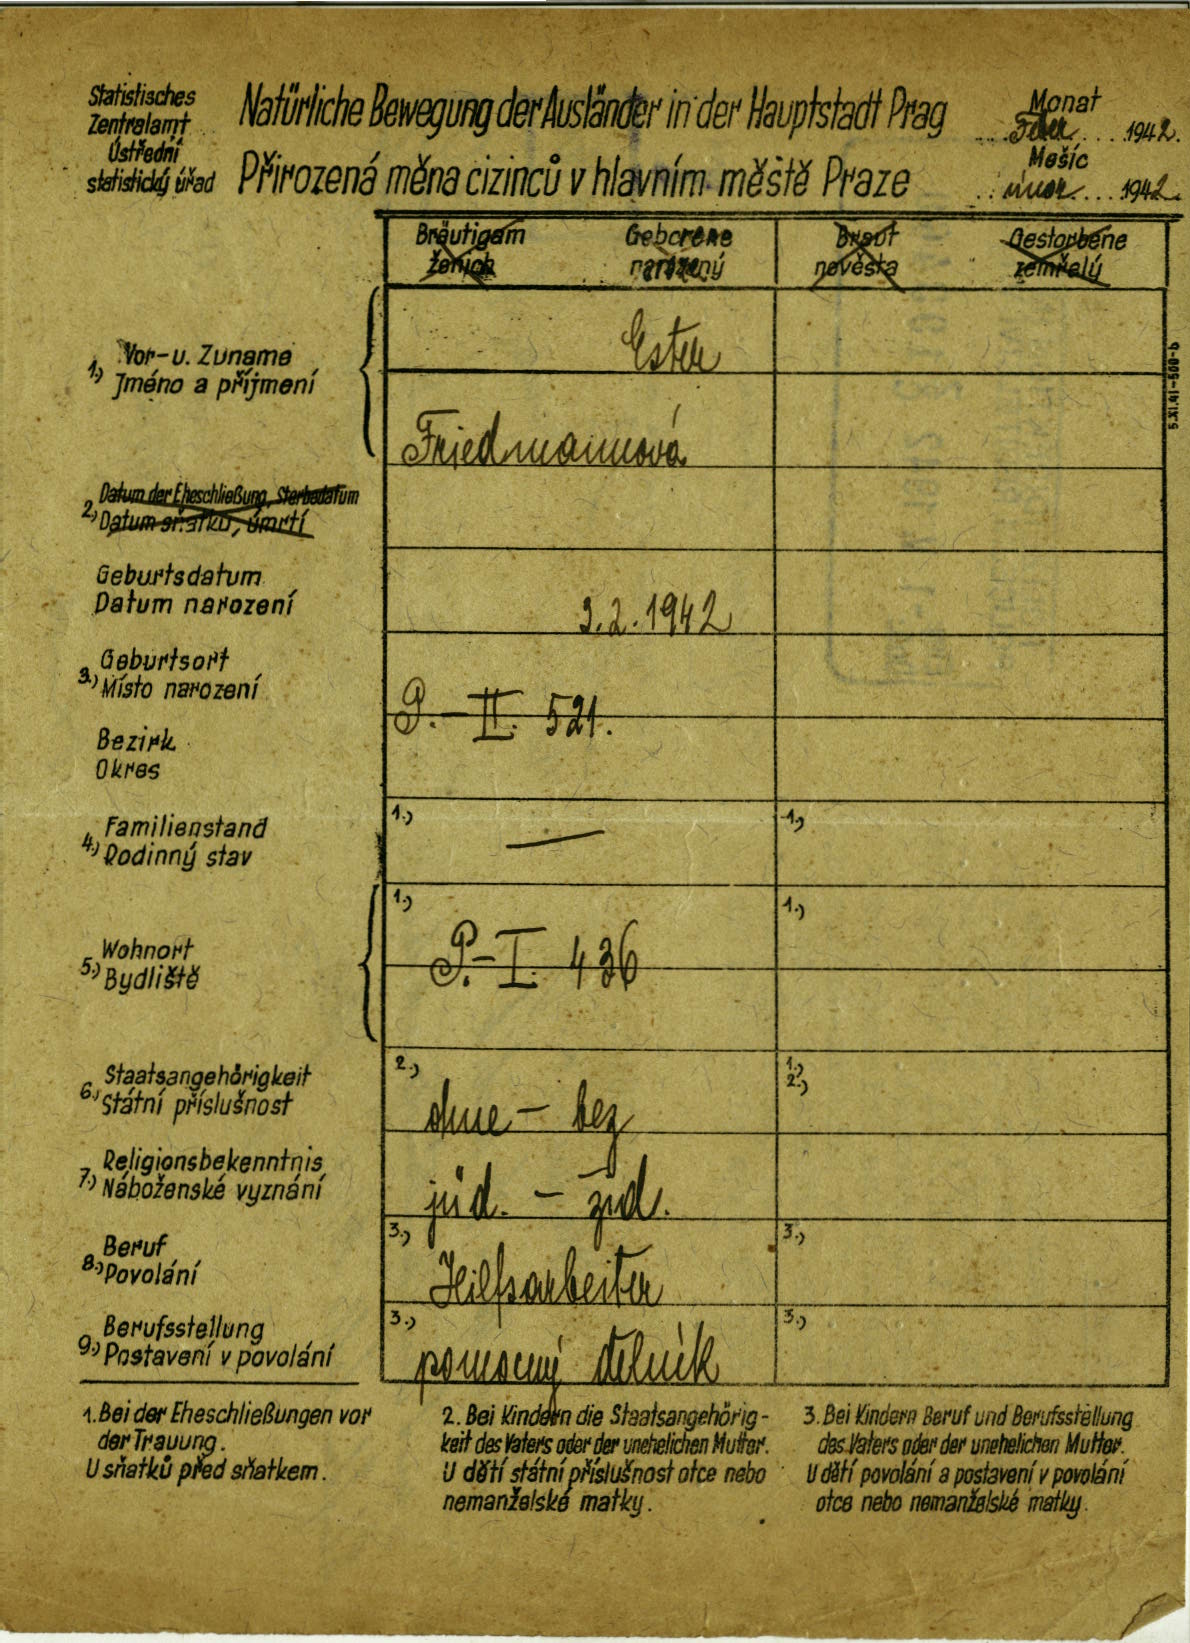 Statistisches
Zentralamt
Ústřední
statistický úřad
Natürliche Bewegung der Ausländer in der Hauptstadt Prag
Přirozená měna cizinců v hlavním městě Praze
Monat
Feber 1942.
Měsíc
únor 1942.
Bräutigam
ženich
Geborene
narozený
Braut
nevěsta
Gestorbene
zemřelý
1.) Vor- u. Zuname
Jméno a příjmení
Ester
Friedmannová
2.) Datum der Eheschließung, Sterbedatum
Datum sňatku, úmrtí
Geburtsdatum
Datum narození
3.2.1942
3.) Geburtsort
Místo narození
P.-II. 521.
Bezirk
Okres
4.) Familienstand
Rodinný stav
1.) —
1.)
5.) Wohnort
Bydliště
1.) P.-I. 436
1.)
6.) Staatsangehörigkeit
Státní příslušnost
2.) ohne - bez
1.)
2.)
7.) Religionsbekenntnis
Náboženské vyznání
jüd. - žid.
8.) Beruf
Povolání
3.) Hilfsarbeiter
3.)
9.) Berufsstellung
Postavení v povolání
3.) pomocný dělník
3.)
5.XI.41-500-b
1. Bei der Eheschließungen vor
der Trauung.
U sňatků před sňatkem.
2. Bei Kindern die Staatsangehörig-
keit des Vaters oder der unehelichen Mutter.
U dětí státní příslušnost otce nebo
nemanželské matky.
3. Bei Kindern Beruf und Berufsstellung
des Vaters oder der unehelichen Mutter.
U dětí povolání a postavení v povolání
otce nebo nemanželské matky.